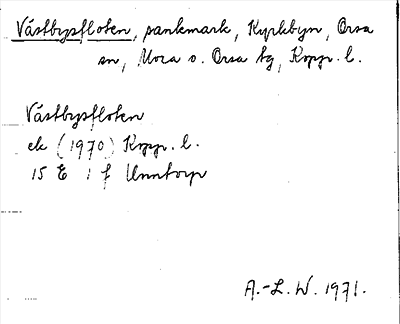 Västbysfloten, sankmark, Kyrkbyn, Orsa
sn, Mora o. Orsa tg, Kopp. l.
Västbysfloten
ek (1970) Kopp. l.
15 E 1 f Unntorp
A.-L. W. 1971.